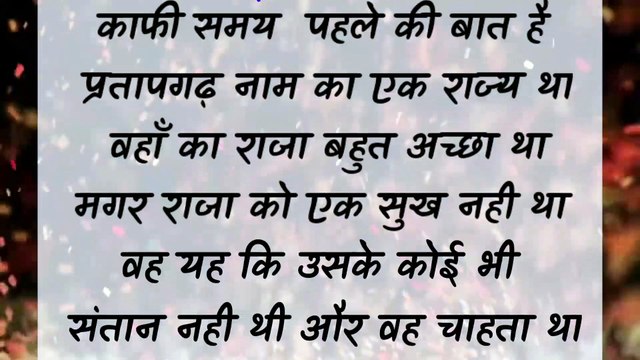 काफी समय पहले की बात है
प्रतापगढ़ नाम का एक राज्य था
वहाँ का राजा बहुत अच्छा था
मगर राजा को एक सुख नही था
वह यह कि उसके कोई भी
संतान नही थी और वह चाहता था